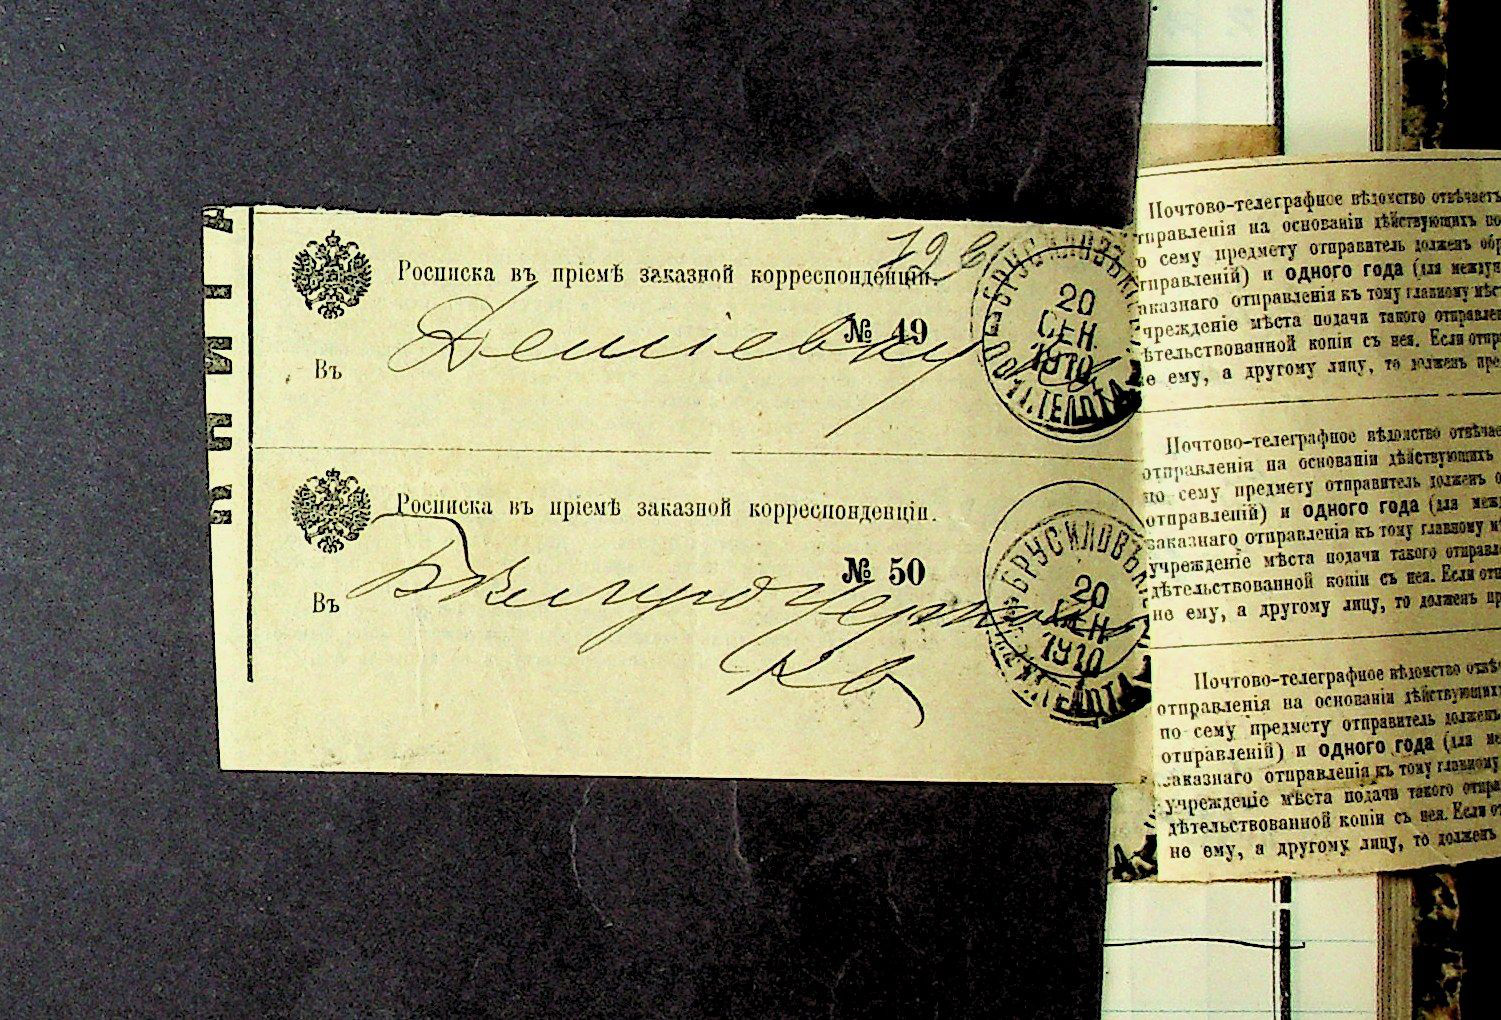 Росписка въ пріемѣ заказной корреспонденціи.
№ 49
Въ
20
СЕН.
1910
Росписка въ пріемѣ заказной корреспонденціи.
№ 50
Въ
БРУСИЛОВЪ
20
СЕН.
1910
Почтово-телеграфное вѣдомство отвѣчаетъ
отправленія на основаніи дѣйствующихъ
о сему предмету отправитель долженъ
отправленій) и одного года (для
заказнаго отправленія къ тому главному
учрежденіе мѣста подачи такого
дѣтельствованной копіи съ нея. Если
не ему, а другому лицу, то долженъ
Почтово-телеграфное вѣдомство
отправленія на основаніи дѣйствующихъ
по сему предмету отправитель долженъ
отправленій) и одного года (для
заказнаго отправленія къ тому главному
учрежденіе мѣста подачи такого
дѣтельствованной копіи съ нея. Если
не ему, а другому лицу, то долженъ
Почтово-телеграфное вѣдомство
отправленія на основаніи дѣйствующихъ
по сему предмету отправитель долженъ
отправленій) и одного года (для
заказнаго отправленія къ тому главному
учрежденіе мѣста подачи такого
дѣтельствованной копіи съ нея. Если
не ему, а другому лицу, то долженъ